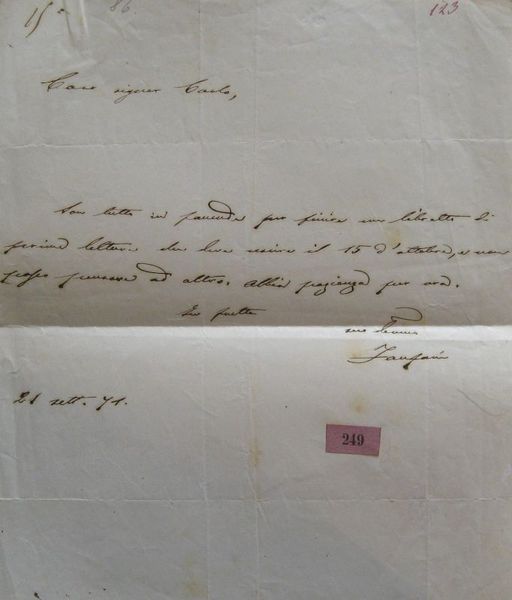 15=
86.
123
Caro signor Carlo,
Son tutto in faccende per finire un libretto di
prima lettura che deve uscire il 15 d'ottobre, e non
posso pensare ad altro. Abbia pazienza per ora.
In fretta
suo
21 sett. 71.
249